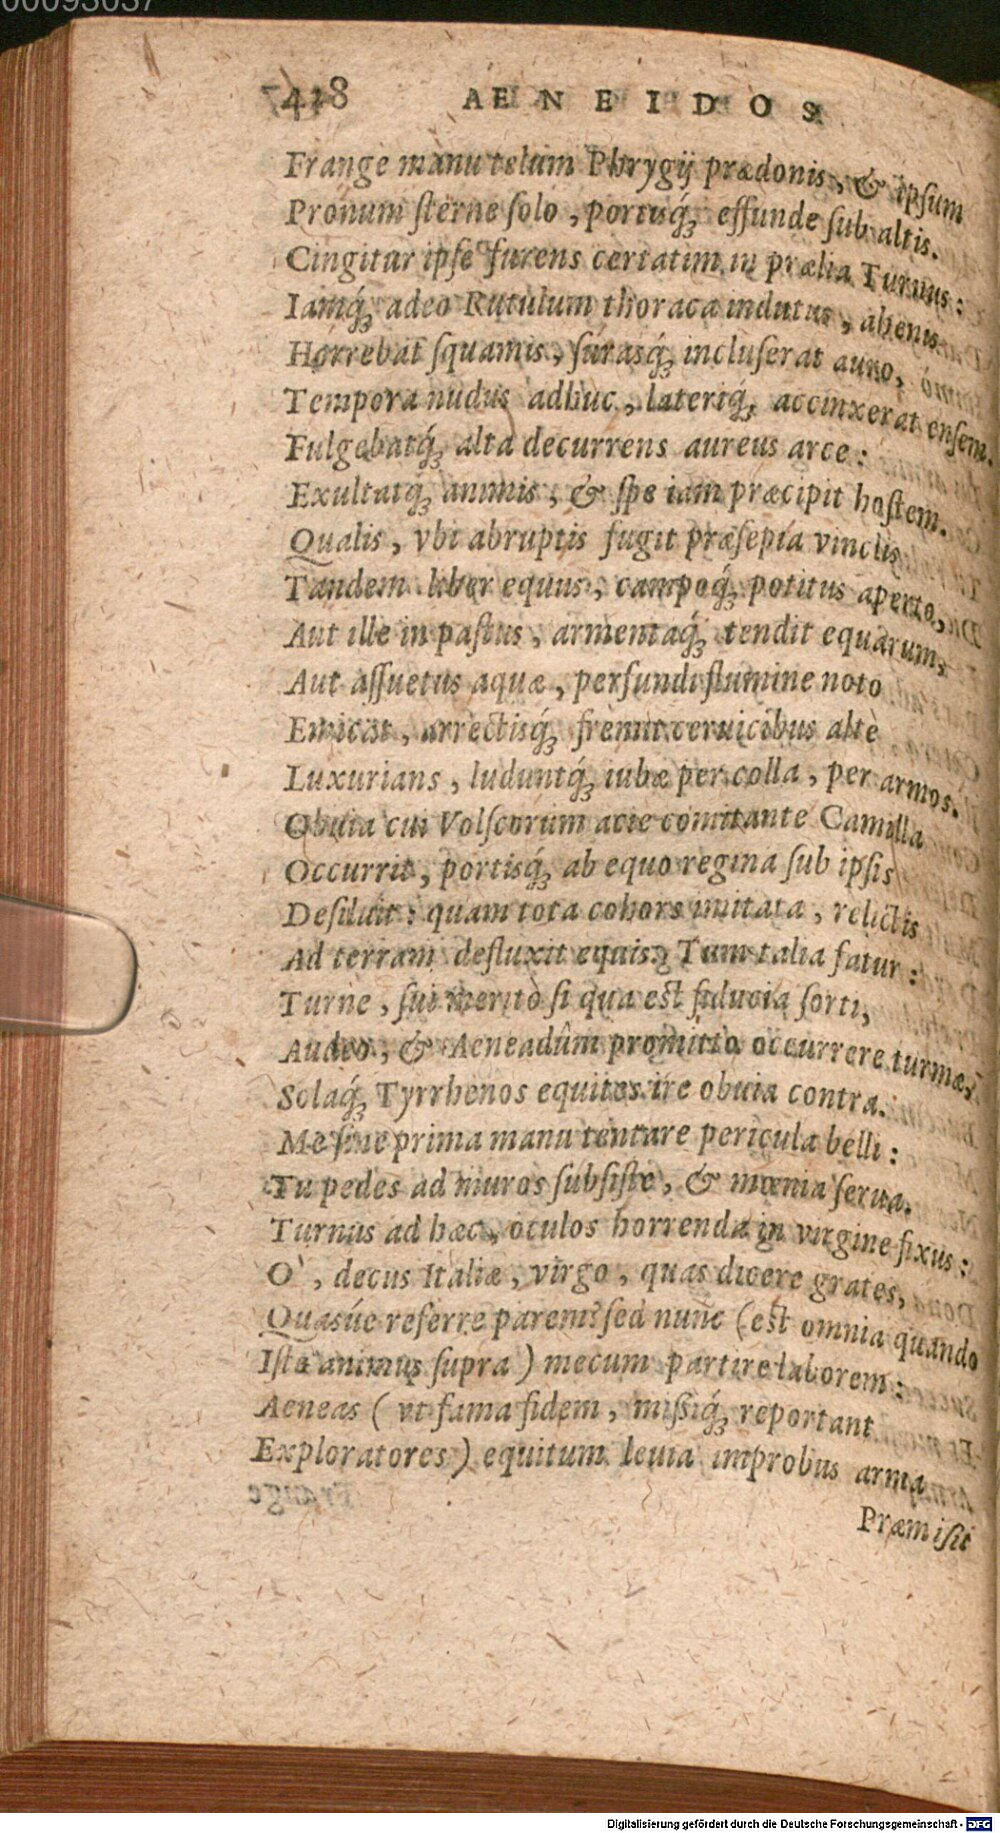 00093037
428 AENEIDOS
Frange manu telum Phrygij prædonis, & ipſum
Pronum ſterne ſolo, portisq́; effunde ſub altis.
Cingitur ipſe furens certatim in prælia Turnus:
Iamq́; adeo Rutulum thoraca indutus, ahenis
Horrebat ſquamis, ſurasq́; incluſerat auro,
Tempora nudus adhuc, lateriq́; accinxerat enſem.
Fulgebatq́; alta decurrens aureus arce:
Exultatq́; animis, & ſpe iam præcipit hoſtem.
Qualis, vbi abruptis fugit præſepia vinclis
Tandem liber equus, campoq́; potitus aperto,
Aut ille in paſtus, armentaq́; tendit equarum,
Aut aſſuetus aquæ, perfundi flumine noto
Emicat, arrectisq́; fremit ceruicibus altè
Luxurians, luduntq́; iubæ per colla, per armos.
Obuia cui Volſcorum acie comitante Camilla
Occurrit, portisq́; ab equo regina ſub ipſis
Deſiluit: quam tota cohors imitata, relictis
Ad terram defluxit equis; Tum talia fatur:
Turne, ſui meritò ſi qua eſt fiducia forti,
Audeo, & Aeneadûm promitto occurrere turmæ,
Solaq́; Tyrrhenos equites ire obuia contra.
Me ſine prima manu tentare pericula belli:
Tu pedes ad muros ſubſiſte, & mœnia ſerua.
Turnus ad hæc, oculos horrenda in virgine fixus:
O', decus Italiæ, virgo, quas dicere grates,
Quasúe referre parem? ſed nunc (eſt omnia quando
Iſte animus ſupra) mecum partire laborem:
Aeneas (vt fama fidem, miſſiq́; reportant
Exploratores) equitum leuia improbus arma
Præmiſit
Digitalisierung gefördert durch die Deutsche Forschungsgemeinschaft - DFG